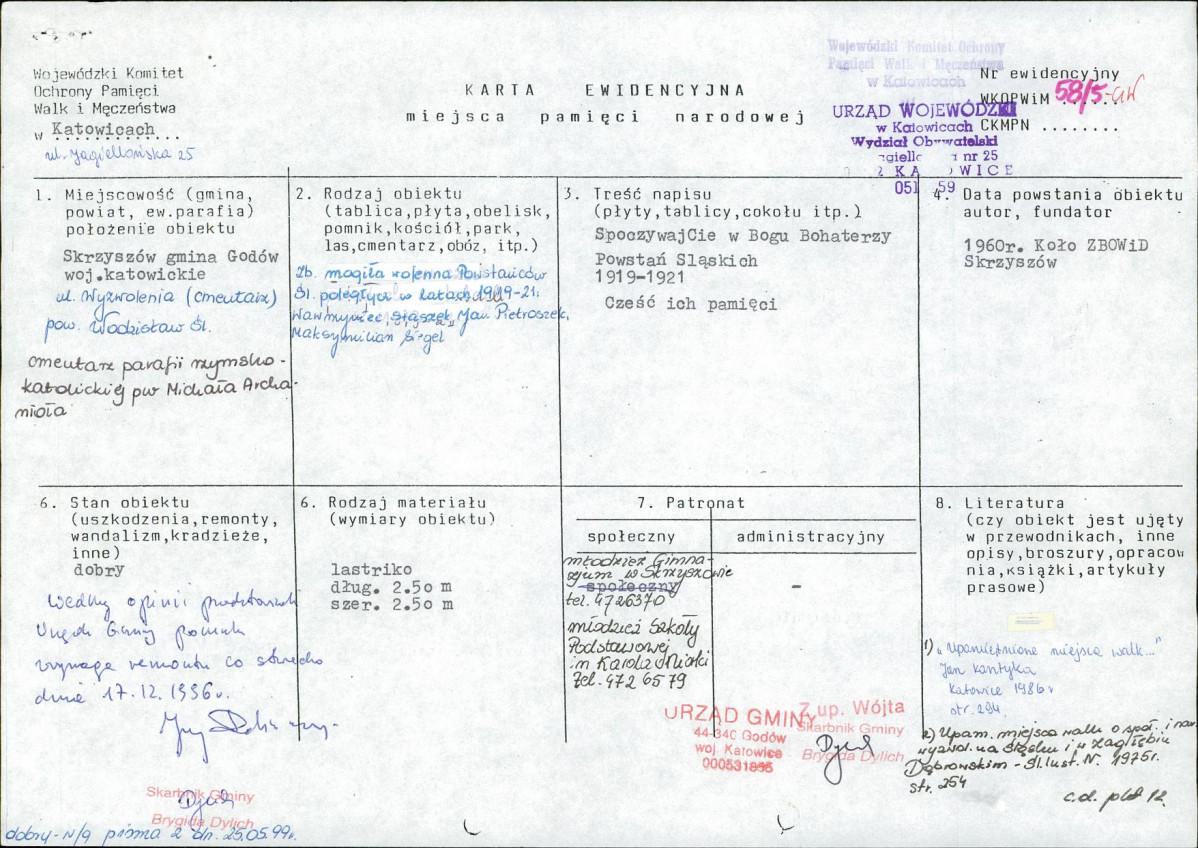 Wojewódzki Komitet
Ochrony Pamięci
Walk i Męczeństwa
w Katowicach
ul. Jagiellońska 25
KARTA EWIDENCYJNA
miejsca pamięci narodowej
Wojewódzki Komitet Ochrony
Pamięci Walk i Męczeństwa
w Katowicach
URZĄD WOJEWÓDZKI
w Katowicach
Wydział Obywatelski
nr 25
Nr ewidencyjny
WKOPWiM 58/5-GW
CKMPN ........
1. Miejscowość (gmina,
powiat, ew.parafia)
położenie obiektu
Skrzyszów gmina Godów
woj.katowickie
ul. Wyzwolenia (cmentarz)
pow. Wodzisław Śl.
cmentarz parafii rzymsko-
katolickiej pw Michała Archa-
nioła
2. Rodzaj obiektu
(tablica,płyta,obelisk,
pomnik,kościół,park,
las,cmentarz,obóz, itp.)
Zb. mogiła wojenna Powstańców
Śl. poległych w latach 1919-21:
Wawrzyniec Jan Pietroszek,
Maksymilian Siegel
3. Treść napisu
(płyty,tablicy,cokołu itp.)
SpoczywajCie w Bogu Bohaterzy
Powstań Sląskich
1919-1921
Cześć ich pamięci
4. Data powstania obiektu
autor, fundator
1960r. Koło ZBOWiD
Skrzyszów
6. Stan obiektu
(uszkodzenia,remonty,
wandalizm,kradzieże,
inne)
dobry
Według opinii przedstawicieli
Urzędu Gminy pomnik
wymaga remontu co stwierdzono
dnia 17.12.1996r.
Skarbnik Gminy
Brygida Dylich
dobry - N/g pisma z dn. 25.05.99r.
6. Rodzaj materiału
(wymiary obiektu)
lastriko
dług. 2.5o m
szer. 2.5o m
7. Patronat
społeczny
administracyjny
młodzież Gimna-
zjum w Skrzyszowie
społeczny
tel. 4726370
młodzież Szkoły
Podstawowej
im Karola Miarki
Tel. 472 65 79
-
URZĄD GMINY
44-340 Godów
woj Katowice
000531895
Z up. Wójta
Skarbnik Gminy
Brygida Dylich
8. Literatura
(czy obiekt jest ujęty
w przewodnikach, inne
opisy,broszury,opracow
nia,książki,artykuły
prasowe)
1) "Upamiętnione miejsca walk..."
Jan Kantyka
Katowice 1986r
str. 294
2) Upam. miejsca walk o społ. i nar.
wyzwol. na Śląsku i w Zagłębiu
Dąbrowskim - Śl. Inst. N. 1975r.
str. 254